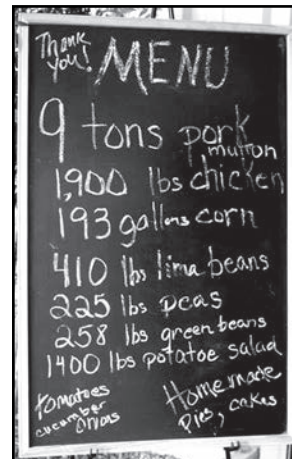 Thank you! MENU
9 tons pork
mutton
1,900 lbs chicken
193 gallons corn
410 lbs lima beans
225 lbs peas
258 lbs green beans
1400 lbs potatoe salad
tomatoes
cucumber
onions
Homemade
pies, cakes